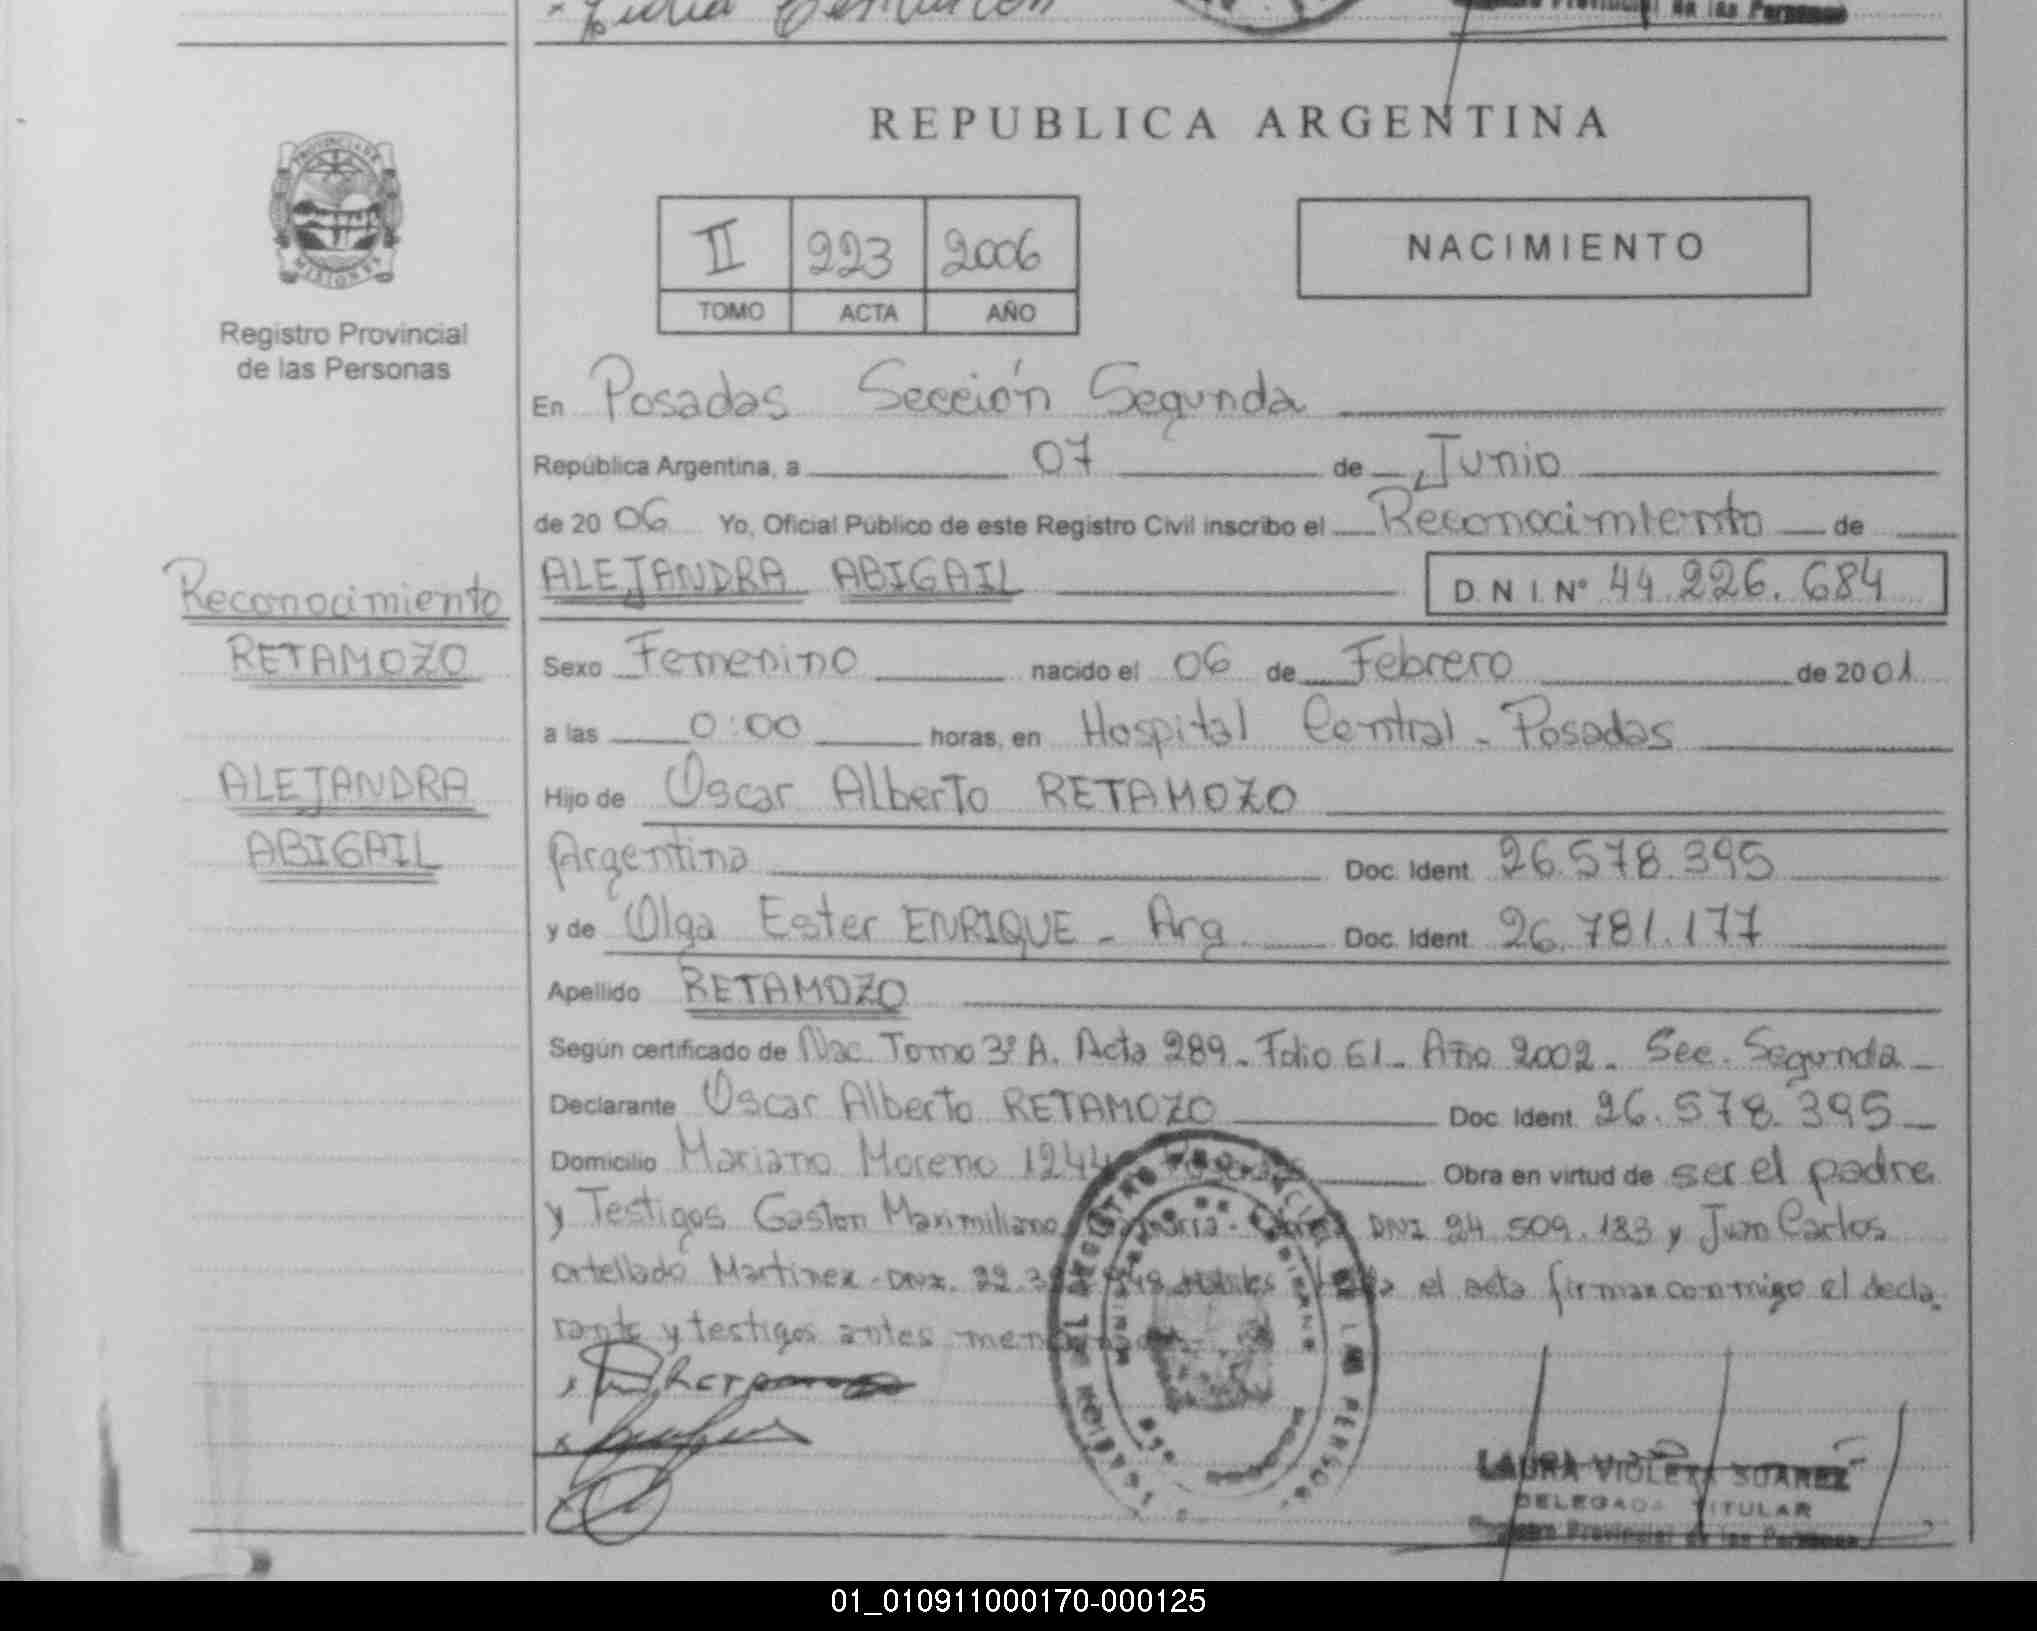 REPUBLICA ARGENTINA
PROVINCIA DE
MISIONES
Registro Provincial
de las Personas
II 223 2006
TOMO ACTA AÑO
NACIMIENTO
En Posadas Sección Segunda
República Argentina, a 07 de Junio
de 20 06 Yo, Oficial Público de este Registro Civil inscribo el Reconocimiento de
ALEJANDRA ABIGAIL D.N.I. Nº 44.226.684
Reconocimiento
RETAMOZO
ALEJANDRA
ABIGAIL
Sexo Femenino nacido el 06 de Febrero de 20 01
a las 0:00 horas, en Hospital Central - Posadas
Hijo de Oscar Alberto RETAMOZO
Argentina Doc. Ident. 26.578.395
y de Olga Ester ENRIQUE - Arg. Doc. Ident. 26.781.177
Apellido RETAMOZO
Según certificado de Nac. Tomo 3º A. Acta 289 - Folio 61 - Año 2002 - Sec. Segunda -
Declarante Oscar Alberto RETAMOZO Doc. Ident. 26.578.395 -
Domicilio Mariano Moreno 1244 Obra en virtud de ser el padre
y Testigos Gaston Maximiliano DNI 24.509.183 y Juan Carlos
ortellado Martinez - DNI. 22.3 el acta firman conmigo el decla-
rante y testigos antes
LAURA VIOLETA SUAREZ
DELEGADA TITULAR
Registro Provincial de las Personas
01_010911000170-000125